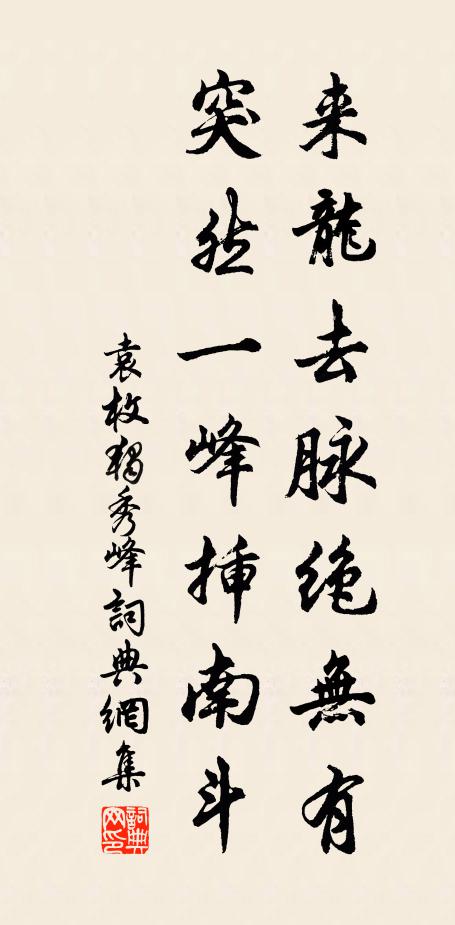 来龍去脉絶無有
突然一峰插南斗
袁枚獨秀峰詞典網集
詞典網印